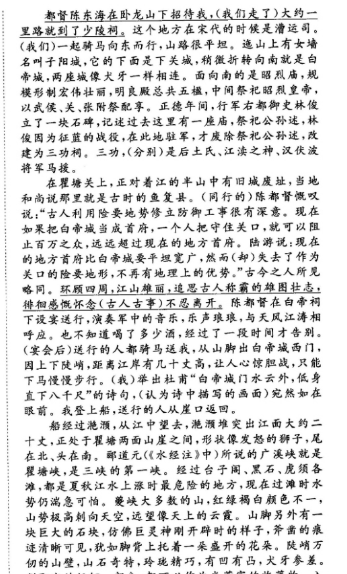 都督陈东海在卧龙山下招待我,(我们走了)大约一
里路就到了少陵祠。这个地方在宋代的时候是漕运司。
(我们)一起骑马向东而行,山路很平坦。迤山上有女墙
名叫子阳城,它的下面是下关城,稍微折转向南就是白
帝城,两座城像犬牙一样相连。面向南的是昭烈庙,规
模形制宏伟壮丽,明良殿总共五楹,中间祭祀昭烈皇帝,
以武侯、关、张附祭配享。正德年间,行军右都御史林俊
立了一块石碑,记述过去这里有一座庙,祭祀公孙述,林
俊因为征蓝的战役,在此地驻军,才废除祭祀公孙述,改
建为三功祠。三功,(分别)是后土氏、江渎之神、汉伏波
将军马援。
在瞿塘关上,正对着江的半山中有旧城废址,当地
和尚说那里就是古时的鱼复县。(同行的)陈都督慨叹
说:“古人利用险要地势修立防御工事很有深意。现在
如果把白帝城当成首府,一个人把守住关口,就可以阻
止百万之众,远远超过现在的地方首府。陆游说:现在
的地方首府比白帝城要平坦宽广,然而(却)失去了作为
关口的险要地形,不再有地理上的优势。”古今之人所见
略同。环顾四周,江山雄丽,追思古人称霸的雄图壮志,
徘徊感慨怀念(古人古事)不忍离开。陈都督在白帝祠
下设宴送行,演奏军中的音乐,乐声琅琅,与天风江涛相
呼应。也不知道喝了多少酒,经过了一段时间才告别。
(宴会后)送行的人都骑马送我,从山脚出白帝城西门,
因上下陡峭,距离江岸有几十丈高,让人心惊胆战,只能
下马慢慢步行。(我)举出杜甫“白帝城门水云外,低身
直下八千尺”的诗句,(认为诗中描写的画面)宛然如在
眼前。我登上船,送行的人从崖口返回。
船经过滟滪,从江中望去,滟滪堆突出江面大约二
十丈,正处于瞿塘两面山崖之间,形状像发怒的狮子,尾
在北、头在南。郦道元(《水经注》中)所说的广溪峡就是
瞿塘峡,是三峡的第一峡。经过台子阁、黑石、虎须各
滩,都是夏秋江水上涨时最危险的地方,现在过滩时水
势仍湍急可怕。夔峡大多数的山,红绿褐白颜色不一,
山势极高刺向天空,远望像天上的云霞。山脚另外有一
块巨大的石块,仿佛巨灵神刚开辟时的样子,斧凿的痕
迹清晰可见,犹如脚背上托着一朵盛开的花朵。陡峭万
仞的山壁,山石奇特,玲珑精巧,有凹有凸,犬牙参差。